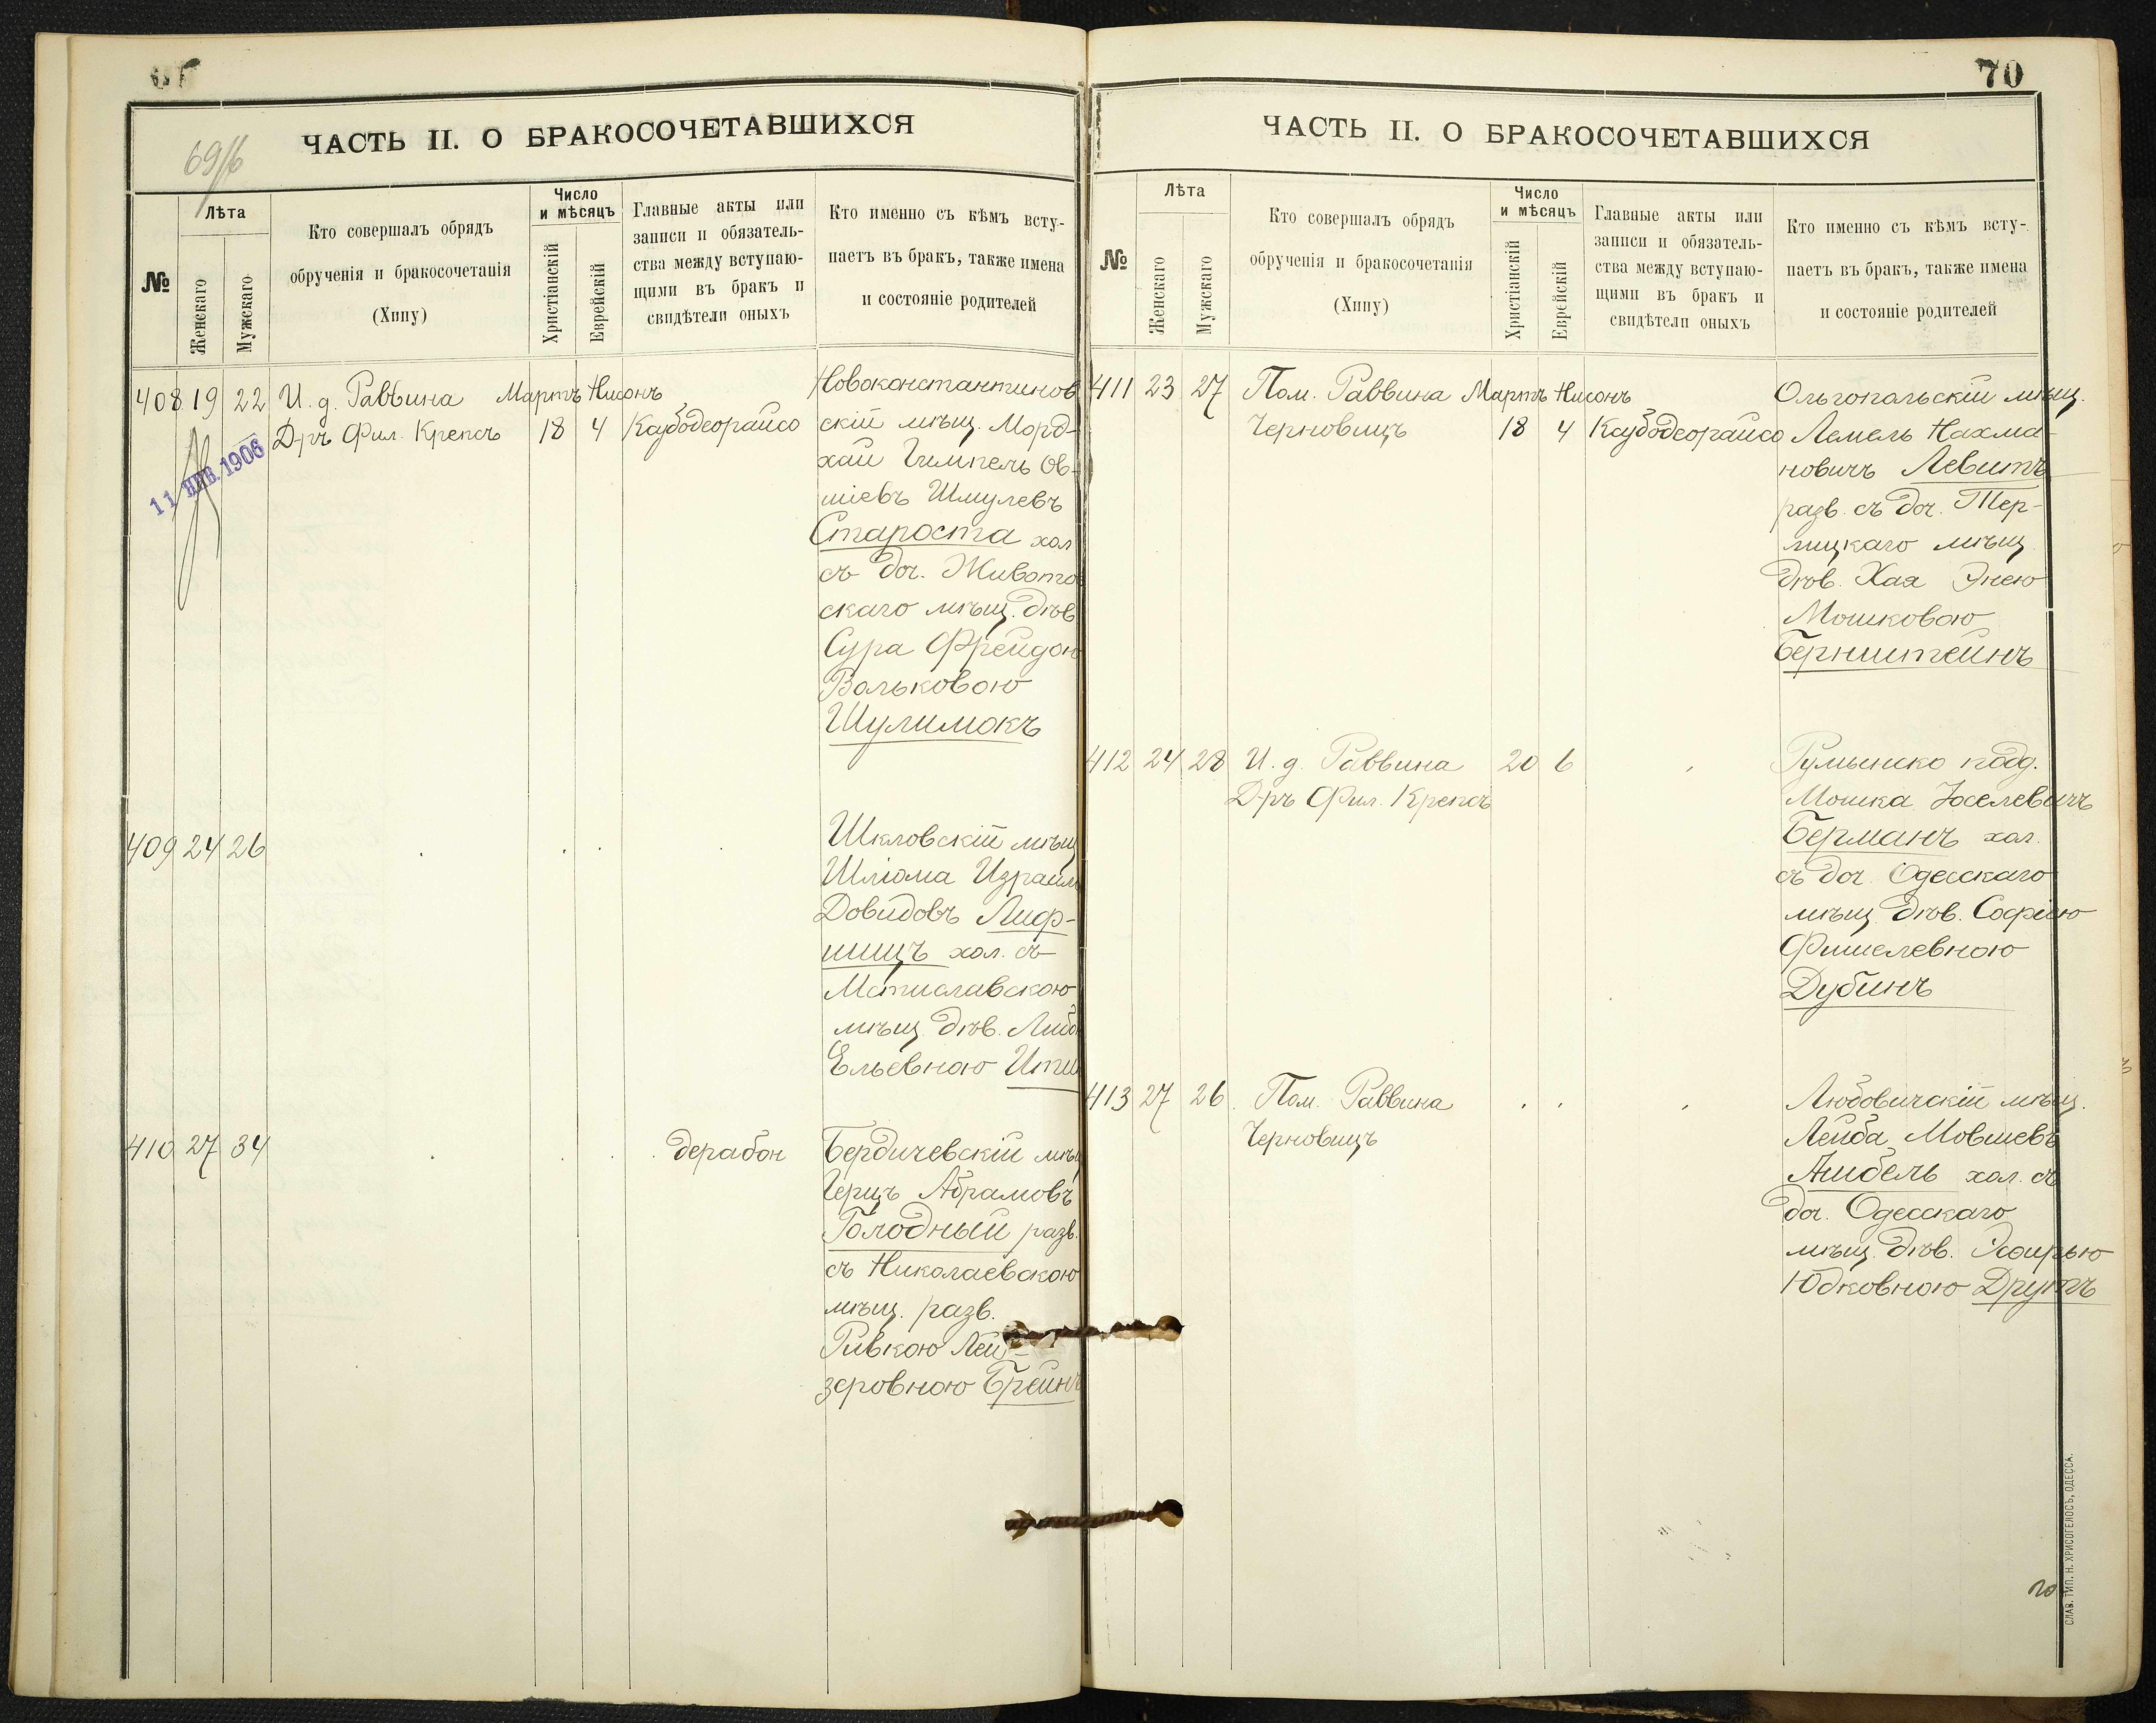 69/б
ЧАСТЬ II. О БРАКОСОЧЕТАВШИХСЯ
№
Лѣта
Женскаго
Мужскаго
Кто совершалъ обрядъ
обрученія и бракосочетанія
(Хипу)
Число
и мѣсяцъ
Христіанскій
Еврейскій
Главные акты или
записи и обязатель-
ства между вступаю-
щими въ бракъ и
свидѣтели оныхъ
Кто именно съ кѣмъ всту-
паетъ въ бракъ, также имена
и состояніе родителей
408 19 22 И. д. Раввина Мартъ Нисонъ
Д-ръ Фил. Крепсъ 18 4 Каубдеорайсо
11 ЯНВ. 1906
Новоконстантинов
скій мѣщ. Морд-
хай Гимпель Ов-
шіевъ Шмулевъ
Староста хол
съ доч. Животов
скаго мѣщ. дѣв
Сура Фрейдою
Вольковою
Шулимокъ
409 24 26
Шкловскій мѣщ
Шліома Израиль
Довидовъ Лиф-
шицъ хол. съ
Мстиславскою
мѣщ. дѣв. Либо
Ельевною
410 27 34 дерабон
Бердичевскій мѣщ
Герцъ Абрамовъ
Голодный разв.
съ Николаевскою
мѣщ. разв.
Ривкою Лей-
зеровною Брейнъ
70
ЧАСТЬ II. О БРАКОСОЧЕТАВШИХСЯ
№
Лѣта
Женскаго
Мужскаго
Кто совершалъ обрядъ
обрученія и бракосочетанія
(Хипу)
Число
и мѣсяцъ
Христіанскій
Еврейскій
Главные акты или
записи и обязатель-
ства между вступаю-
щими въ бракъ и
свидѣтели оныхъ
Кто именно съ кѣмъ всту-
паетъ въ бракъ, также имена
и состояніе родителей
411 23 27 Пом. Раввина Мартъ Нисонъ
Черновицъ 18 4 Каубдеорайсо
Ольгопольскій мѣщ.
Лемель Нахма-
новичъ Левитъ
разв. съ доч. Тер-
лицкаго мѣщ
дѣв. Хая Энею
Мошковою
Бернштейнъ
412 24 28 И. д. Раввина 20 6
Д-ръ Фил. Крепсъ
Румынско подд.
Мошка Іоселевичъ
Берманъ хол.
съ доч. Одесскаго
мѣщ. дѣв. Софіею
Фишелевною
Дубинъ
413 27 26 Пом. Раввина
Черновицъ
Любовичскій мѣщ.
Лейба Мовшевъ
Аибель хол. съ
доч. Одесскаго
мѣщ. дѣв. Эсѳирью
Юдковною Друтъ
СЛАВ. ТИП. Н. ХРИСОГЕЛОСЪ, ОДЕССА.